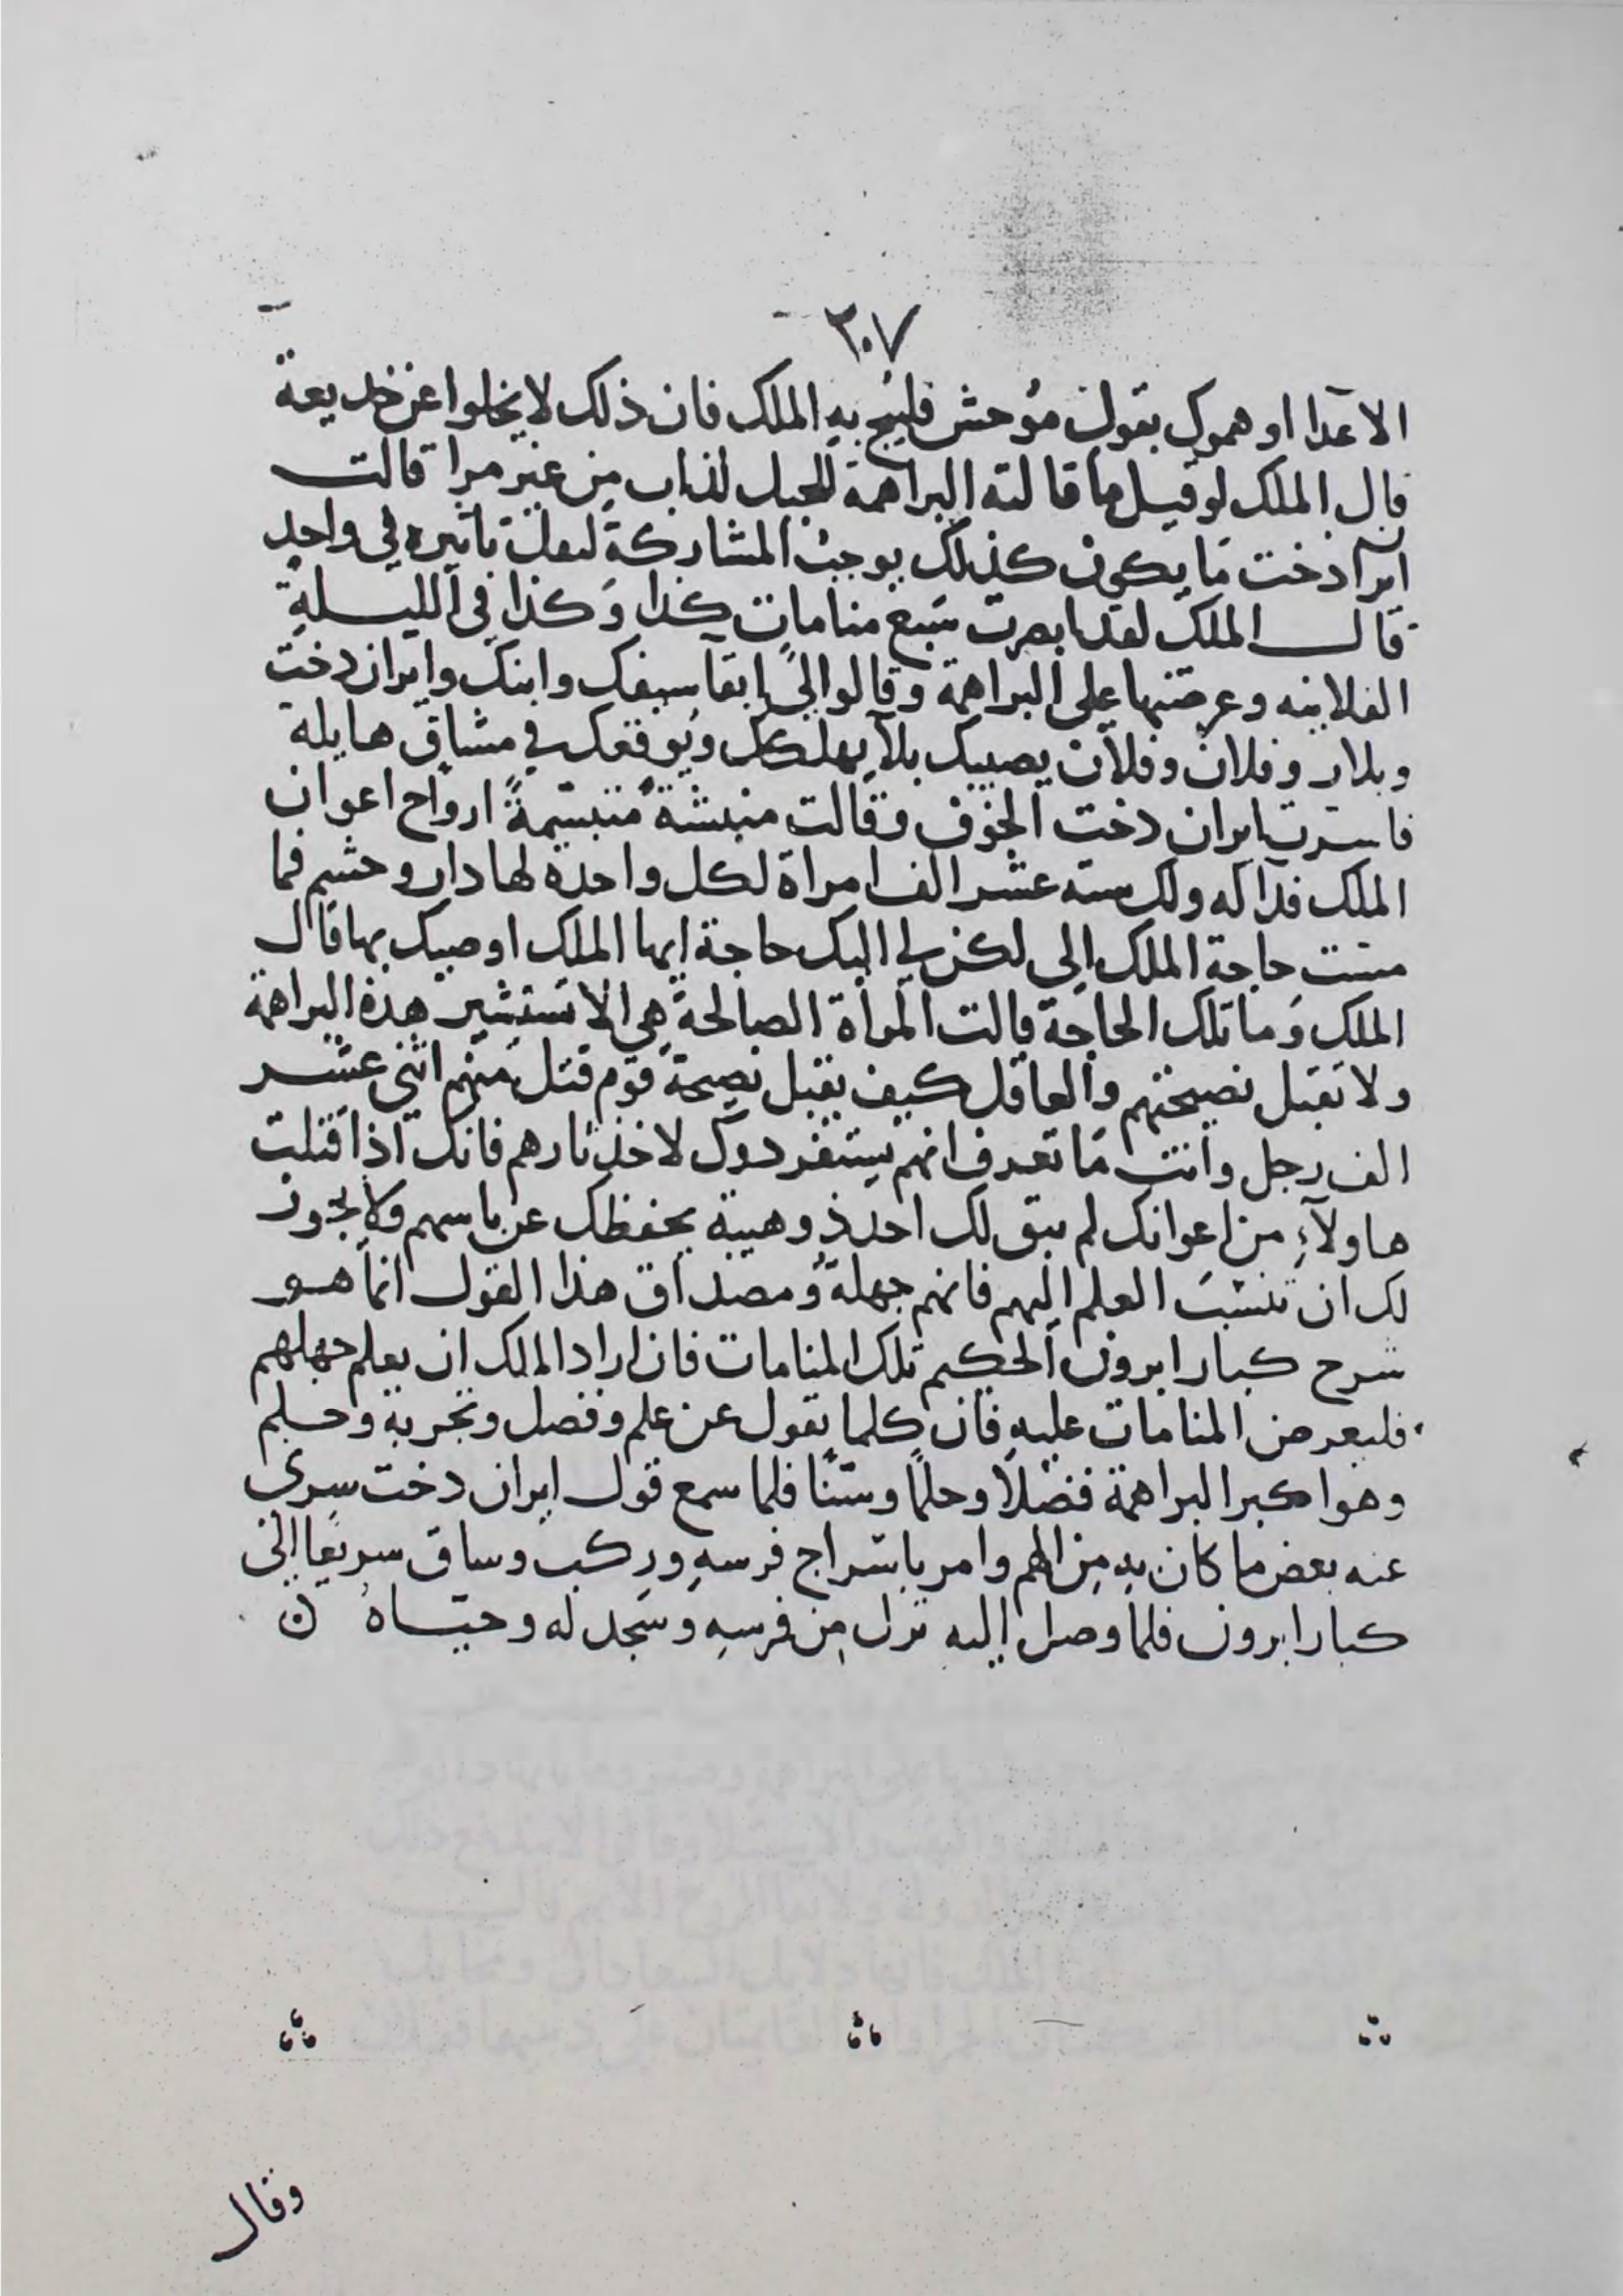 ٢٠٧
الاعدا اوهموك بقول موحش فليبح به الملك فان ذلك لا يخلوا عن خديعة
قال الملك لو قيل ما قالته البراهمة للجبل لذاب من غير مرا قالت
ايرادخت ما يكون كذلك يوجب المشاركة لعل تاثيره في واحد
قال الملك لقد ابصرت سبع منامات كذا وكذا في الليلة
الفلانيه وعرضتها على البراهمة وقالوا لي إبقآ سيفك وابنك وايران دخت
وبلار وفلان وفلان يصيبك بلآ يهلكك ويوقعك في مشاق هايلة
فاسرت ايران دخت الخوف وقالت منبشة متبسمة ارواح اعوان
الملك فدآ له ولك سته عشر الف امراة لكل واحدة لها دار وحشم فما
مست حاجة الملك الي لكن لي اليك حاجة ايها الملك اوصيك بها قال
الملك وما تلك الحاجة قالت المراة الصالحة هي الا تستشير هذه البراهمة
ولا تقبل نصيحتهم والعاقل كيف يقبل نصيحة قوم قتل منهم اثني عشر
الف رجل وانت ما تعرف انهم يستفردوك لاخذ ثارهم فانك اذا قتلت
هاولآءِ من اعوانك لم يبق لك احد ذو هيبة يحفظك عن باسهم ولا يجوز
لك ان تنسب العلم اليهم فانهم جهلة ومصداق هذا القول انما هو
شرح كبار ابرون الحكيم تلك المنامات فان اراد الملك ان يعلم جهلهم
فليعرض المنامات عليه فان كلما يقول عن علم وفضل وتجربة وحلم
وهو اكبر البراهمة فضلاً وحلماً وسنًا فلما سمع قول ايران دخت سرى
عنه بعض ما كان به من الهم وامر باسراج فرسهِ وركب وساق سريعا الى
كبار ابرون فلما وصل اليه نزل من فرسهِ وسجد له وحياه ن
وقال